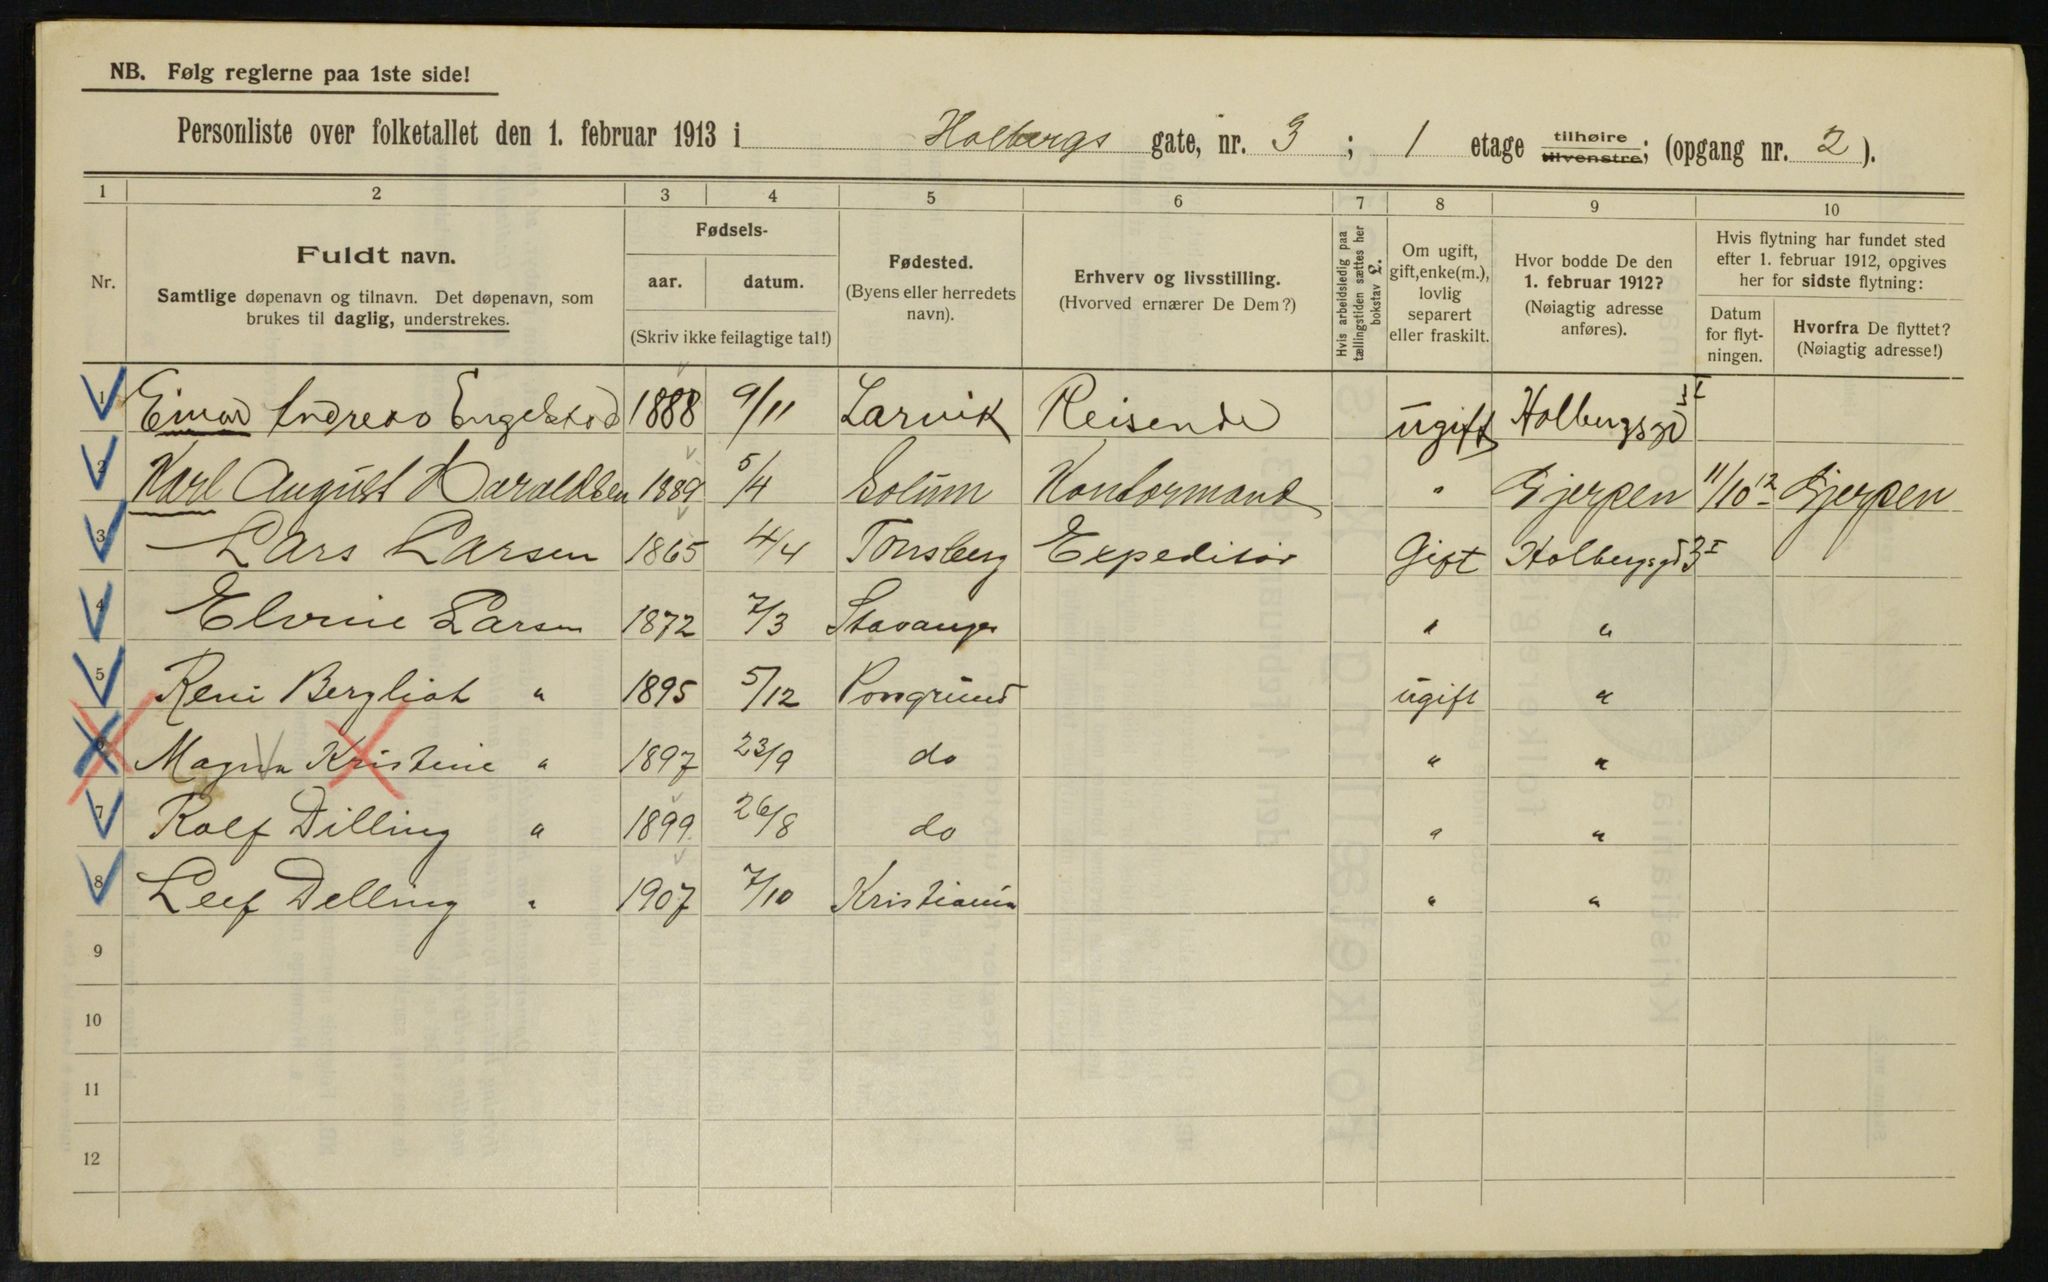 NB. Følg reglerne paa 1ste side!
Personliste over folketallet den 1. februar 1913 i Holbergs gate, nr. 3 ; 1 etage tilhøire tilvenstre; (opgang nr. 2 ).
1 2 3 4 5 6 7 8 9 10
Nr.
Fuldt navn.
Samtlige døpenavn og tilnavn. Det døpenavn, som
brukes til daglig, understrekes.
Fødsels-
aar. datum.
(Skriv ikke feilagtige tal!)
Fødested.
(Byens eller herredets
navn).
Erhverv og livsstilling.
(Hvorved ernærer De Dem?)
Hvis arbeidsledig paa
tællingstiden sættes her
bokstav L.
Om ugift,
gift, enke(m.),
lovlig
separert
eller fraskilt.
Hvor bodde De den
1. februar 1912?
(Nøiagtig adresse
anføres).
Hvis flytning har fundet sted
efter 1. februar 1912, opgives
her for sidste flytning:
Datum
for flyt-
ningen.
Hvorfra De flyttet?
(Nøiagtig adresse!)
1 Einar Andreas Engelstad 1888 9/11 Larvik Reisende ugift Holbergsgd
2 Karl August Haraldsen 1889 5/4 Solum Kontormand " Gjerpen 11/10 12 Gjerpen
3 Lars Larsen 1865 4/4 Tønsberg Expeditør Gift Holbergsgd 3 I
4 Elvine Larsen 1872 7/3 Stavanger " "
5 Reni Bergliot " 1895 5/12 Porsgrund ugift "
6 Magna Kristine " 1897 23/9 do " "
7 Rolf Dilling " 1899 26/8 do " "
8 Leif Delling " 1907 7/10 Kristiania " "
9
10
11
12